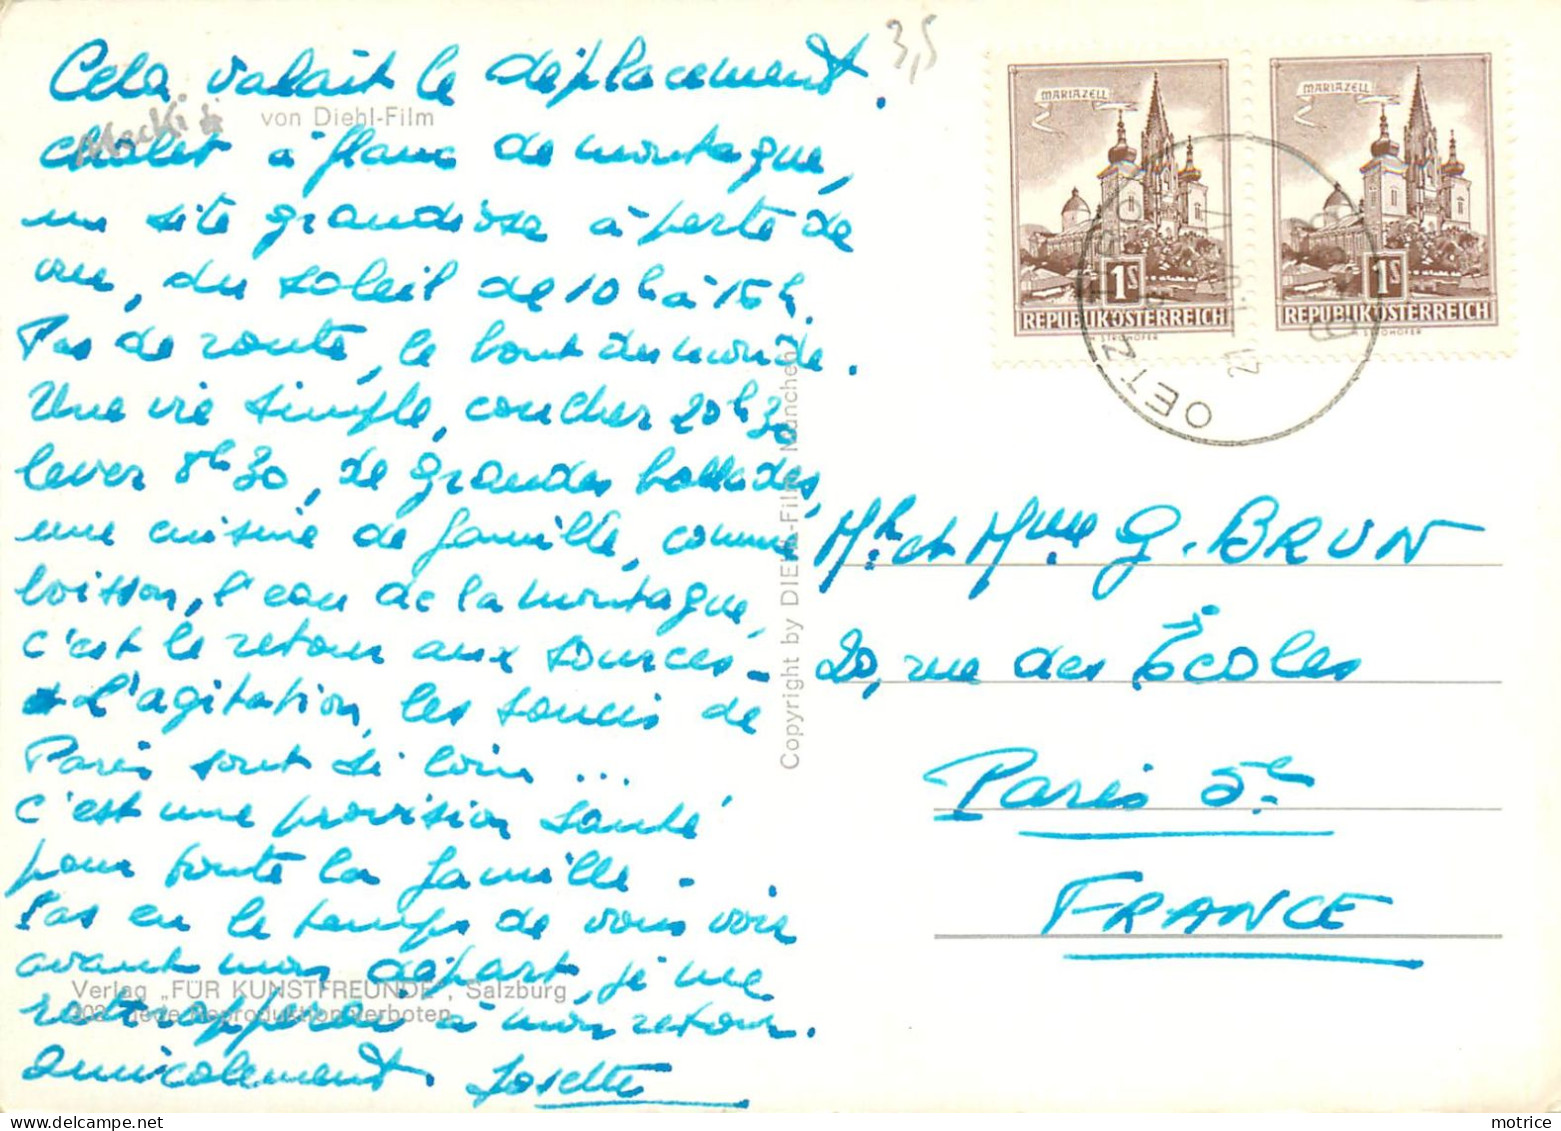 Cela valait le déplacement.
chalet à flanc de montagne,
un site grandiose à perte de
vue, du soleil de 10h à 15h.
Pas de route, le bout du monde.
Une vie simple, coucher 20h30
lever 8h30, de grandes ballades,
une cuisine de famille, comme
boisson, l'eau de la montagne,
c'est le retour aux sources -
L'agitation, les soucis de
Paris sont si loin ...
c'est une provision santé
pour toute la famille -
Pas eu le temps de vous voir
avant mon départ, je me
rattraperai à mon retour.
amicalement. Josette
Mecki
von Diehl-Film
Verlag „FÜR KUNSTFREUNDE", Salzburg
Reproduktion verboten
Copyright by DIEHL-Film München
3,5
MARIAZELL
1S
REPUBLIK ÖSTERREICH
STROHOFER
MARIAZELL
1S
REPUBLIK ÖSTERREICH
STROHOFER
OETZ
Mr. et Mme G. BRUN
20, rue des Écoles
Paris 5e
FRANCE
motrice